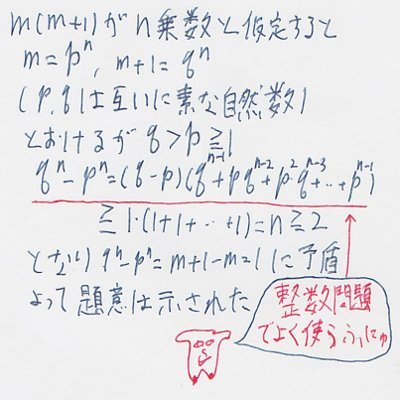 m(m+1)がn乗数と仮定すると
m=pⁿ, m+1=qⁿ
(p,qは互いに素な自然数)
とおけるが q>p≧1
qⁿ-pⁿ=(q-p)(qⁿ⁻¹+pqⁿ⁻²+p²qⁿ⁻³+…+pⁿ⁻¹)
≧1・(1+1+…+1)=n≧2
となり qⁿ-pⁿ=m+1-m=1に矛盾
よって題意は示された
整数問題
でよく使うふにゅ